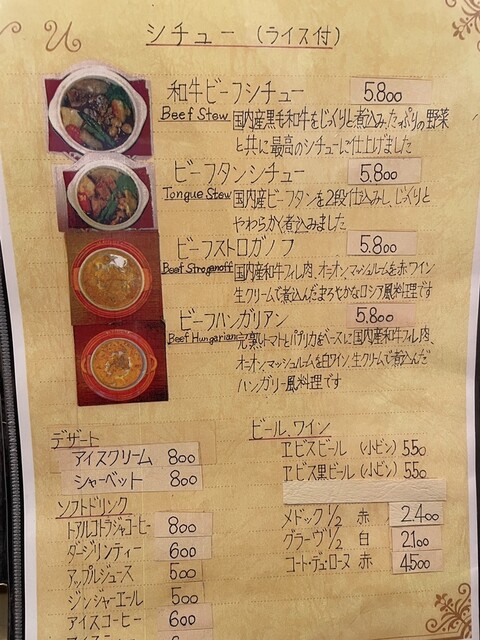 シチュー (ライス付)
和牛ビーフシチュー 5.800
Beef Stew 国内産黒毛和牛をじっくりと煮込み、たっぷりの野菜
と共に最高のシチューに仕上げました
ビーフタンシチュー 5.800
Tongue Stew 国内産ビーフタンを2段仕込みし、じっくりと
やわらかく煮込みました
ビーフストロガノフ 5.800
Beef Stroganoff 国内産和牛フィレ肉、オニオン、マッシュルームを赤ワイン
生クリームで煮込んだまろやかなロシア風料理です
ビーフハンガリアン 5.800
Beef Hungarian 完熟トマトとパプリカをベースに国内産和牛フィレ肉、
オニオン、マッシュルームを白ワイン、生クリームで煮込んだ
ハンガリー風料理です
デザート
アイスクリーム 800
シャーベット 800
ソフトドリンク
トアルコトラジャコーヒー 800
ダージリンティー 600
アップルジュース 500
ジンジャーエール 500
アイスコーヒー 600
ビール、ワイン
ヱビスビール (小ビン) 550
ヱビス黒ビール (小ビン) 550
メドック 1/2 赤 2.400
グラーヴ 1/2 白 2.100
コート・デュ・ローヌ 赤 4.500